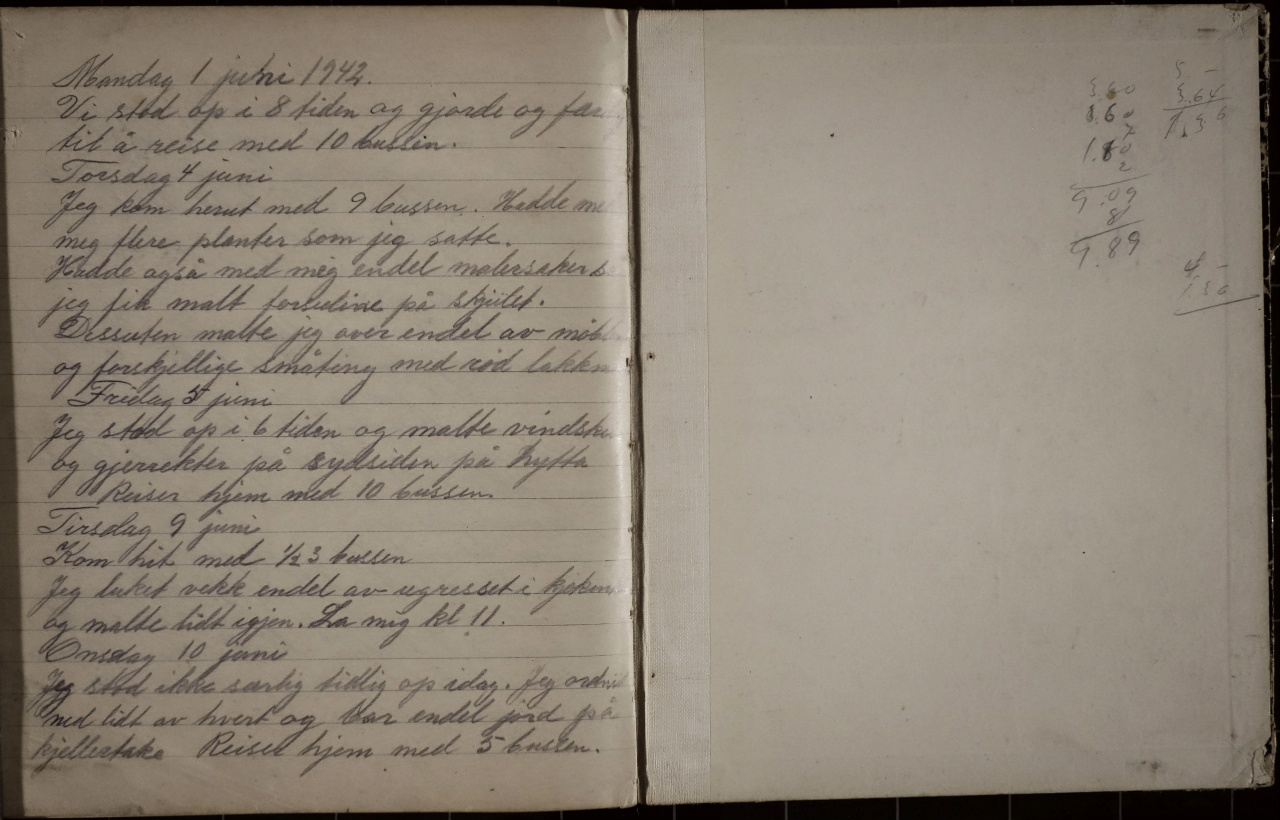 Mandag 1 juni 1942.
Vi stod op i 8 tiden og gjorde og
til å reise med 10 bussen.
Torsdag 4 juni
Jeg kom herut med 9 bussen. Hadde med
meg flere planter som jeg satte.
Hadde også med meg endel malersaker
jeg fik malt forsidene på skjulet.
Dessuten malte jeg over endel av
og forskjellige småting med rød
Fredag 5 juni
Jeg stod op i 6 tiden og malte
og på sydsiden på hytta
Reiser hjem med 10 bussen.
Tirsdag 9 juni
Kom hit med 1/2 3 bussen
Jeg luket vekk endel av ugresset i
og malte lidt igjen. La mig kl 11.
Onsdag 10 juni
Jeg stod ikke særlig tidlig op idag. Jeg
med lidt av hvert og bar endel jord på
kjellertaket Reiser hjem med 5 bussen.
3.60
1.80
2
9.09
81
9.89
5. –
3.64
1.36
4. –
1.36